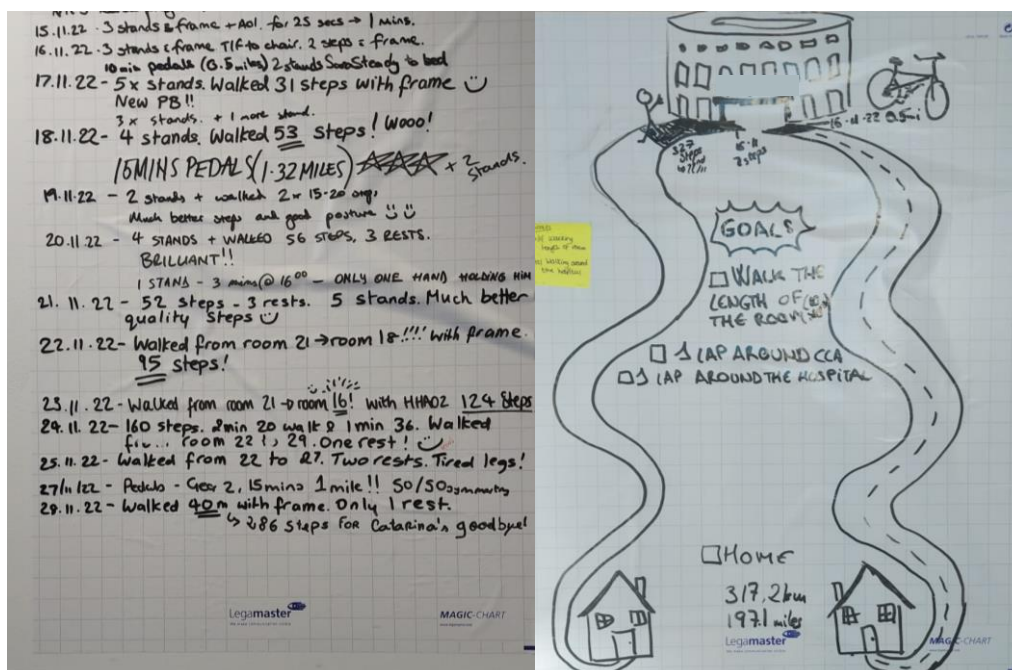 15.11.22 - 3 stands c frame + AoI. for 25 secs → 1 mins.
16.11.22 - 3 stands c frame T/F to chair. 2 steps c frame.
10min pedals (0.5miles) 2 stands SaraSteady to bed
17.11.22 - 5x stands. Walked 31 steps with frame
New PB!!
3 x stands. + 1 more stand.
18.11.22 - 4 stands. Walked 53 steps! Wooo!
15MINS PEDALS (1.32 MILES) + 2 stands.
19.11.22 - 2 stands + walked 2 x 15-20 steps,
Much better steps and good posture
20.11.22 - 4 STANDS + WALKED 56 STEPS, 3 RESTS.
BRILLIANT!!
1 STAND - 3 mins @ 16:00 - ONLY ONE HAND HOLDING HIM
21.11.22 - 52 steps - 3 rests. 5 stands. Much better
quality steps
22.11.22 - Walked from room 21 → room 18!!!! with frame.
95 steps!
23.11.22 - Walked from room 21 → room 16! with HHAO2 124 Steps
24.11.22 - 160 steps. 2min 20 walk & 1 min 36. Walked
room 22 29. One rest!
25.11.22 - Walked from 22 to 27. Two rests. Tired legs!
27/11/22 - Pedals - Gear 2, 15mins 1 mile!! 50/50 symmetry
29.11.22 - Walked 40m with frame. Only 1 rest.
↳ 286 steps for Catarina's goodbye!
Legamaster
MAGIC-CHART
16.11.22 0.5mi
327
Steps
16.11
2 steps
GOALS
WALK THE
LENGTH OF
THE ROOM
1 LAP AROUND CCA
1 LAP AROUND THE HOSPITAL
walking
length of room
walking around
the hospital
HOME
317.2km
197.1 miles
Legamaster
MAGIC-CHART